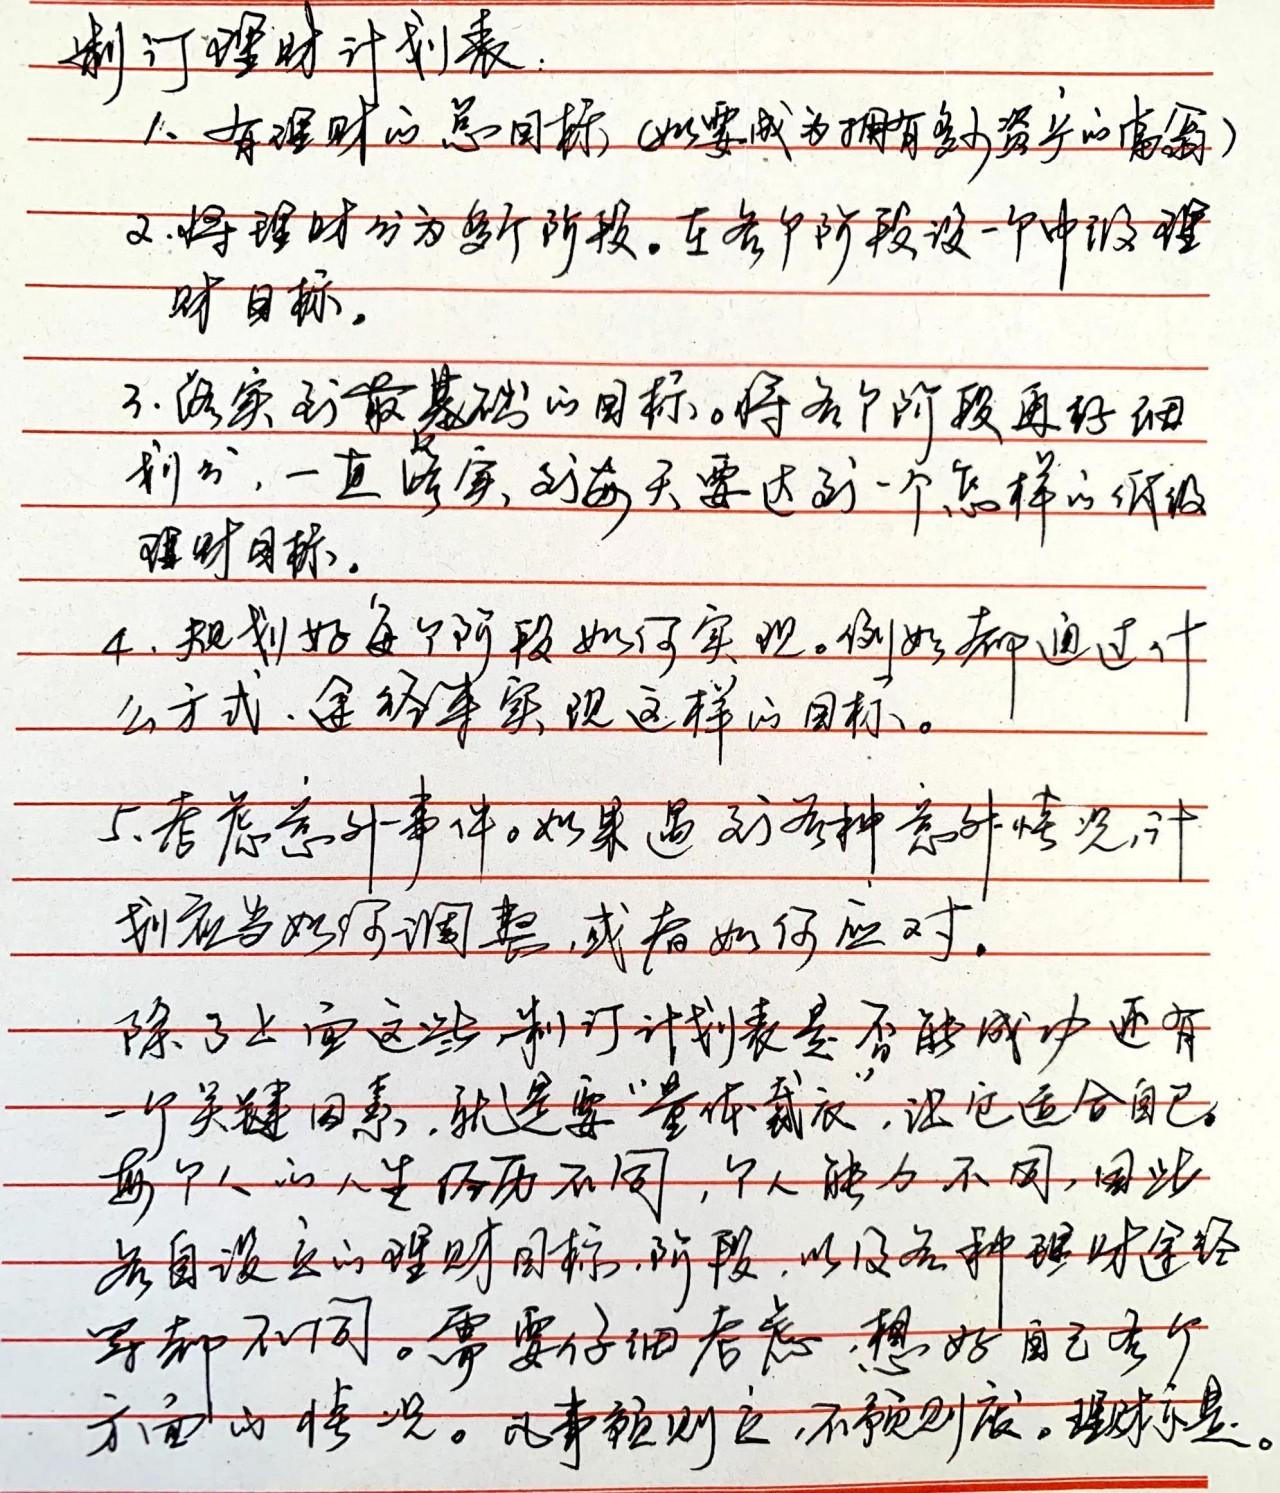 制订理财计划表:
1、有理财的总目标(如要成为拥有多少资产的富翁)
2.将理财分为多个阶段。在各个阶段设一个中级理
财目标。
3.落实到最基础的目标。将各个阶段再好细
划分,一直落实到每天要达到一个怎样的低级
理财目标。
4.规划好每个阶段如何实现。例如都通过什
么方式、途径来实现这样的目标。
5.考虑意外事件。如果遇到各种意外情况,计
划应当如何调整,或者如何应对。
除了上面这些,制订计划表是否能成功还有
一个关键因素,就是要“量体裁衣”,让它适合自己。
每个人的人生经历不同,个人能力不同,因此
各自设立的理财目标、阶段,以及各种理财途径
等都不同。需要仔细考虑,想好自己各个
方面的情况。凡事预则立,不预则废。理财亦是。